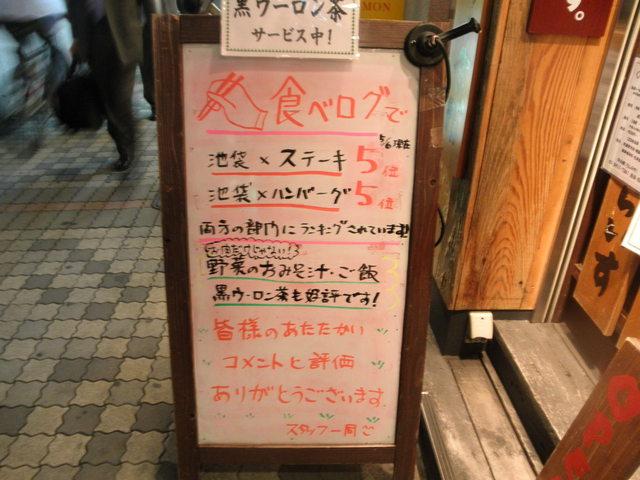 黒ウーロン茶
サービス中!
MON
食べログで
5/6現在
池袋×ステーキ 5位
池袋×ハンバーグ 5位
両方の部門にランキングされています!!
お肉だけじゃない!
野菜のおみそ汁・ご飯
黒ウーロン茶も好評です!
皆様のあたたかい
コメントと評価
ありがとうございます
スタッフ一同
OPE